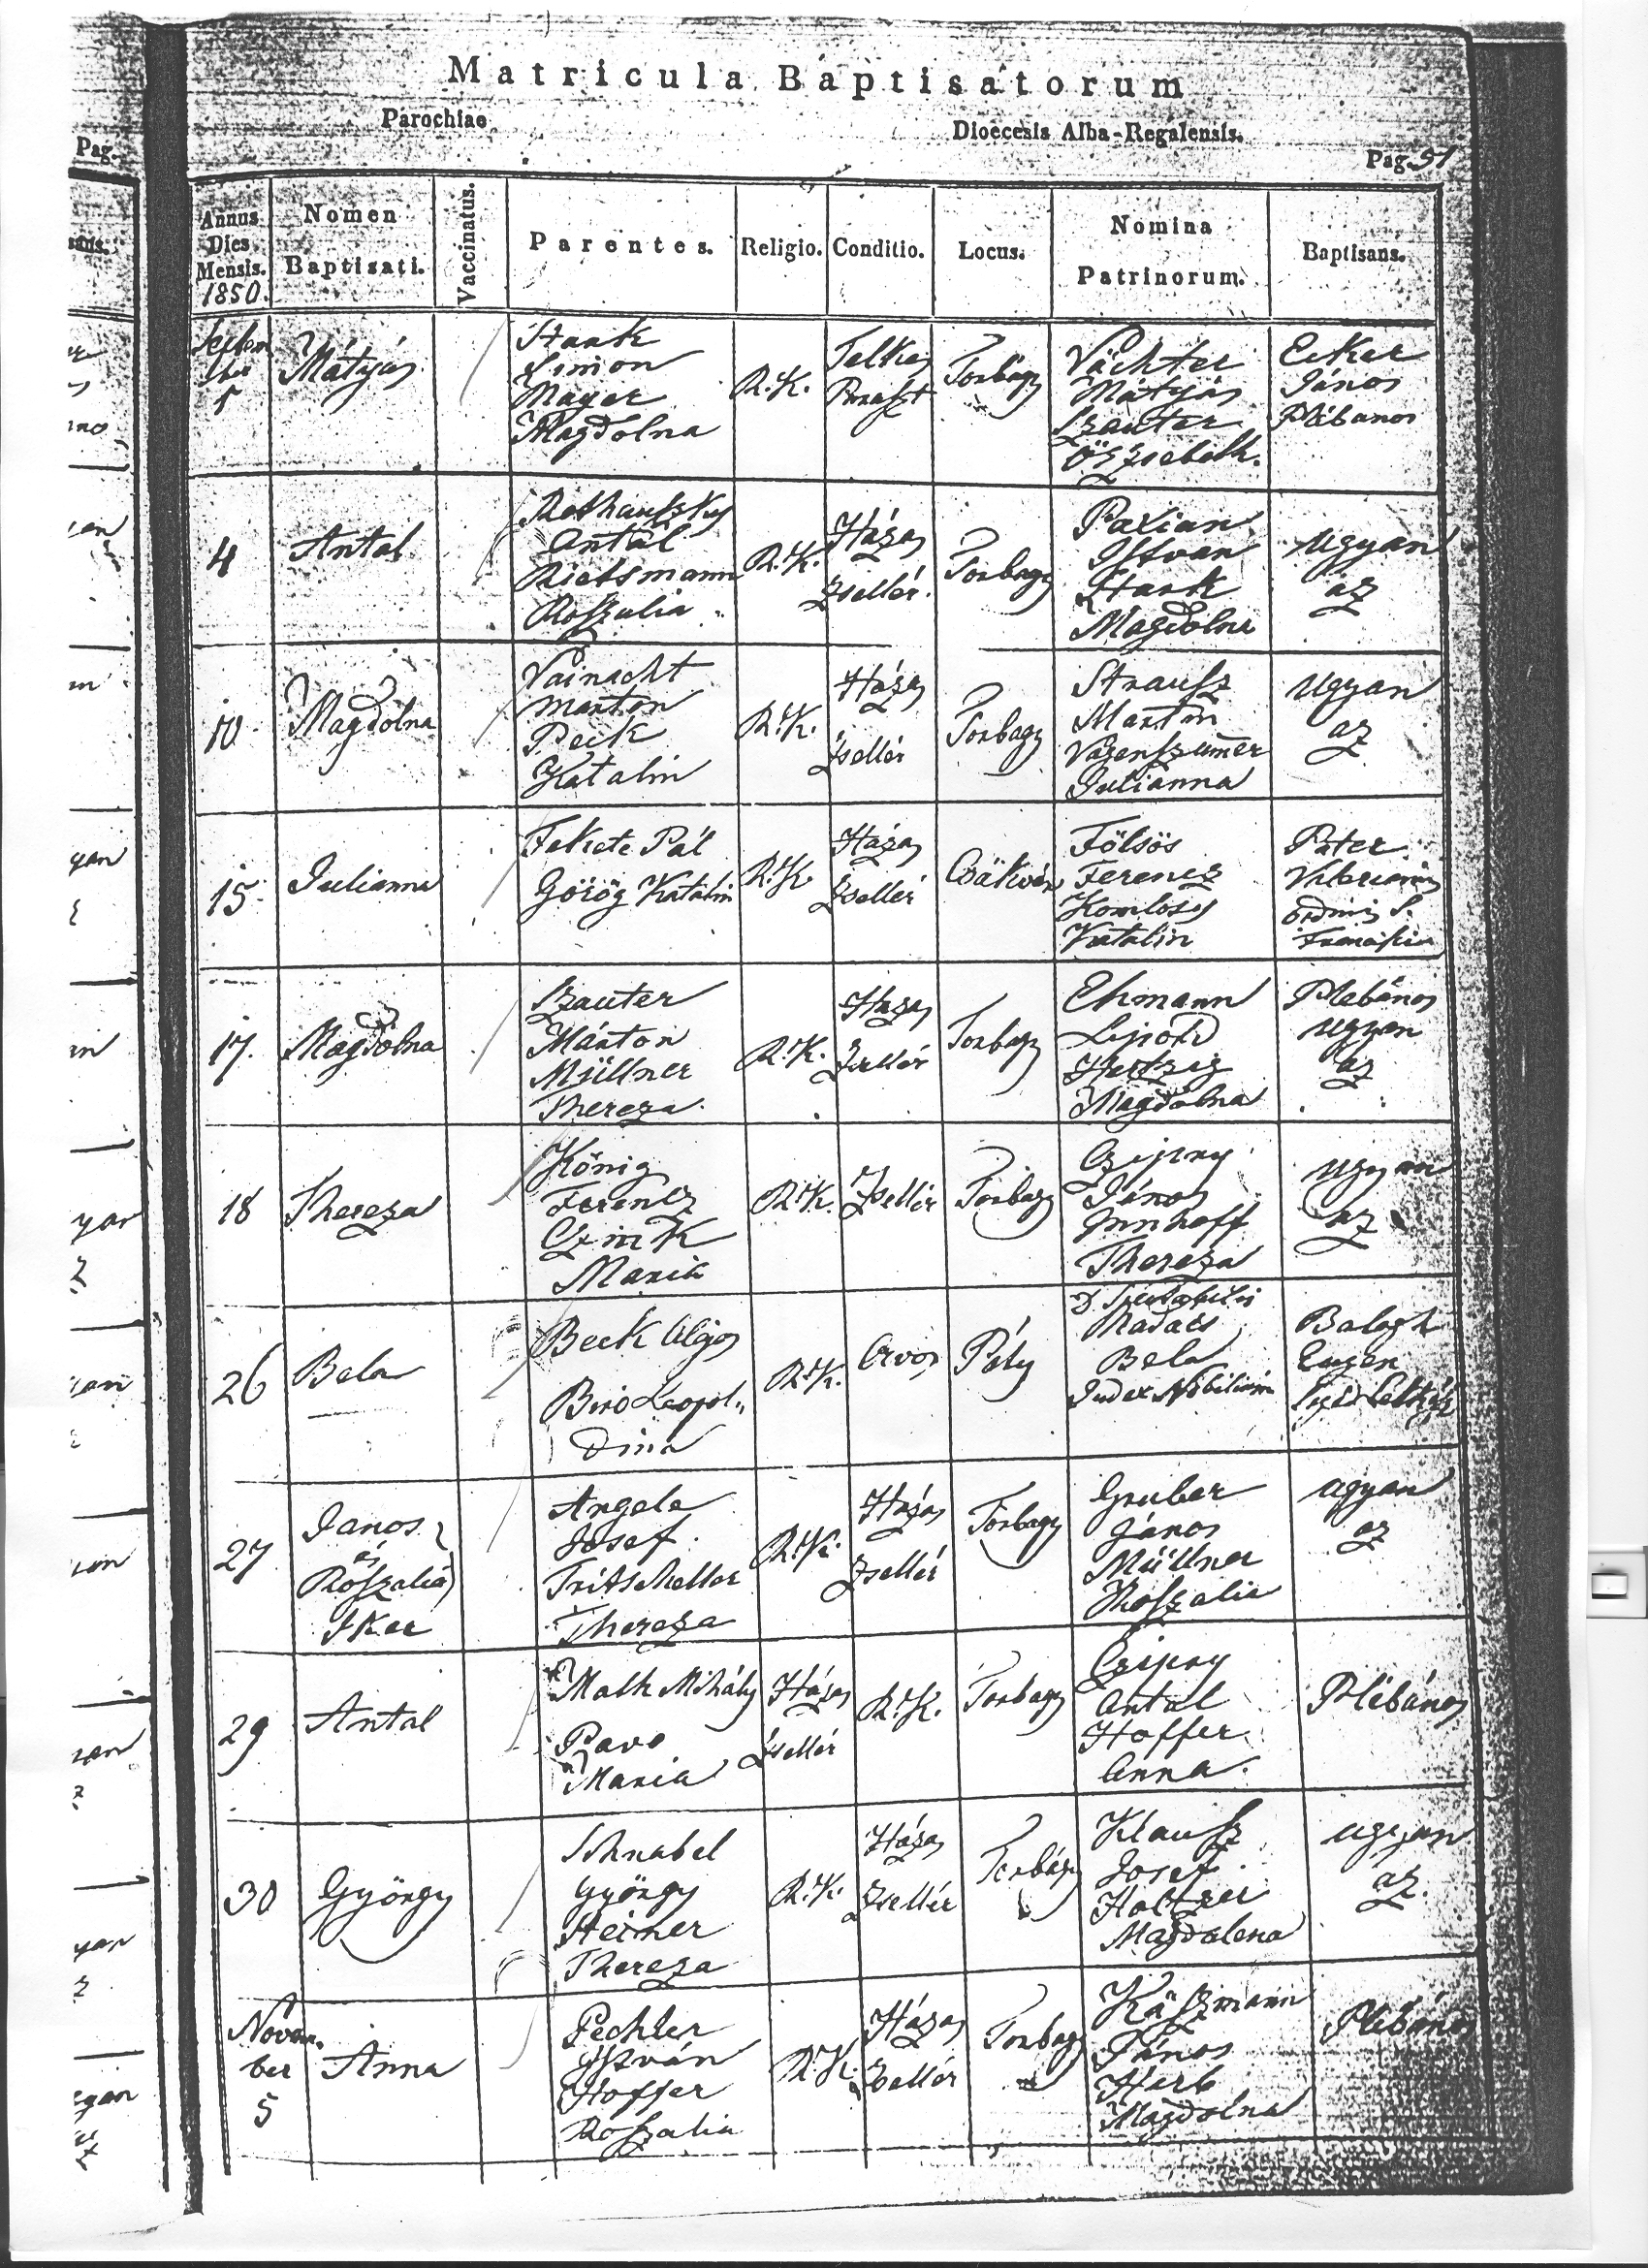 Matricula Baptisatorum
Parochiae
Dioecesis Alba-Regalensis.
Pag.
Pag. 51
Annus Dies Mensis. 1850.
Nomen Baptisati.
Vaccinatus.
Parentes.
Religio.
Conditio.
Locus.
Nomina Patrinorum.
Baptisans.
Mátyás
Stark
Simon
Mayer
Magdolna
R.K.
Telkes
Paraszt
Torbágy
Vächter
Mátyás
Szauter
Örzsebeth.
Ecker
János
Plébanos
4
Antal
Antal
Rietsmann
Roszalia
R.K.
Házas
Zsellér.
Torbagy
Paxian
Istvan
Stark
Magdolna
Ugyan
az
10
Magdolna
Vainacht
Marton
Peck
Katalin
R.K.
Házas
Zsellér
Torbagy
Strausz
Marton
Julianna
Ugyan
az
15
Julianna
Fekete Pál
Görög Katalin
R.K.
Házas
Zsellér
Csákvár
Fölsös
Ferencz
Komlosy
Katalin
Páter
17.
Magdolna
Szauter
Márton
Müllner
Thereza.
R.K.
Hazas
Zsellér
Torbagy
Ehmann
Lipold
Hertzig
Magdolna
Plebános
ugyan
az
18
Thereza
König
Ferencz
Czink
Maria
R.K.
Zsellér
Torbagy
Czipry
János
Imhoff
Thereza
Ugyan
az
26
Bela
Beck Alajos
Biro Leopol„
dina
R.K.
Orvos
Páty
D. Spectabilis
Kadacs
Bela
Judex Nobilium
Balogh
Eugen
27
Janos
és
Roszalia
Iker
Angele
Josef
Tritscheller
Thereza
R.K.
Házas
Zsellér
Torbagy
Gruber
János
Müllner
Roszalia
ugyan
az
29
Antal
Math Mihály
Pavo
Maria
Házas
Zsellér
R.K.
Torbagy
Czipry
Antal
Hoffer
Anna.
Plébános
30
György
Schnabel
György
Heimer
Thereza
R.K.
Házas
Zsellér
Torbágy
Klausz
Josef
Holtzer
Magdalena
ugyan
az.
Novem.
ber
5
Anna
Pechler
István
Hoffer
Roszalia
R.K.
Házas
Zsellér
Torbagy
Käszmann
János
Herb
Magdolna
Plébános